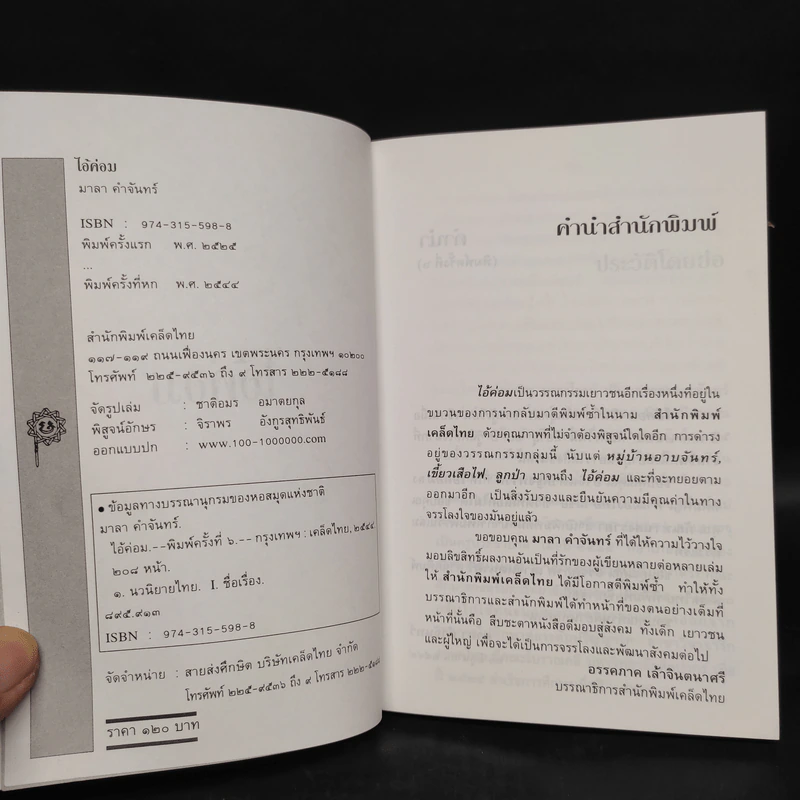 ไอ้ค่อม
มาลา คำจันทร์
ISBN : 974-315-598-8
พิมพ์ครั้งแรก พ.ศ. ๒๕๒๕
...
พิมพ์ครั้งที่หก พ.ศ. ๒๕๔๔
สำนักพิมพ์เคล็ดไทย
๑๑๗-๑๑๙ ถนนเฟื่องนคร เขตพระนคร กรุงเทพฯ ๑๐๒๐๐
โทรศัพท์ ๒๒๕-๙๕๓๖ ถึง ๙ โทรสาร ๒๒๒-๕๑๘๘
จัดรูปเล่ม : ชาติอมร อมาตยกุล
พิสูจน์อักษร : จิราพร อังกูรสุทธิพันธ์
ออกแบบปก : www.100-1000000.com
• ข้อมูลทางบรรณานุกรมของหอสมุดแห่งชาติ
มาลา คำจันทร์.
ไอ้ค่อม.--พิมพ์ครั้งที่ ๖.-- กรุงเทพฯ : เคล็ดไทย, ๒๕๔๔.
๒๐๘ หน้า.
๑. นวนิยายไทย. I. ชื่อเรื่อง.
๘๙๕.๙๑๓
ISBN : 974-315-598-8
จัดจำหน่าย : สายส่งศึกษิต บริษัทเคล็ดไทย จำกัด
โทรศัพท์ ๒๒๕-๙๕๓๖ ถึง ๙ โทรสาร ๒๒๒-๕๑๘๘
ราคา ๑๒๐ บาท
คำนำสำนักพิมพ์
ไอ้ค่อมเป็นวรรณกรรมเยาวชนอีกเรื่องหนึ่งที่อยู่ใน
ขบวนของการนำกลับมาตีพิมพ์ซ้ำในนาม สำนักพิมพ์
เคล็ดไทย ด้วยคุณภาพที่ไม่จำต้องพิสูจน์ใดใดอีก การดำรง
อยู่ของวรรณกรรมกลุ่มนี้ นับแต่ หมู่บ้านอาบจันทร์,
เขี้ยวเสือไฟ, ลูกป่า มาจนถึง ไอ้ค่อม และที่จะทยอยตาม
ออกมาอีก เป็นสิ่งรับรองและยืนยันความมีคุณค่าในทาง
จรรโลงใจของมันอยู่แล้ว
ขอขอบคุณ มาลา คำจันทร์ ที่ได้ให้ความไว้วางใจ
มอบลิขสิทธิ์ผลงานอันเป็นที่รักของผู้เขียนหลายต่อหลายเล่ม
ให้ สำนักพิมพ์เคล็ดไทย ได้มีโอกาสตีพิมพ์ซ้ำ ทำให้ทั้ง
บรรณาธิการและสำนักพิมพ์ได้ทำหน้าที่ของตนอย่างเต็มที่
หน้าที่นั้นคือ สืบชะตาหนังสือดีมอบสู่สังคม ทั้งเด็ก เยาวชน
และผู้ใหญ่ เพื่อจะได้เป็นการจรรโลงและพัฒนาสังคมต่อไป
อรรคภาค เล้าจินตนาศรี
บรรณาธิการสำนักพิมพ์เคล็ดไทย